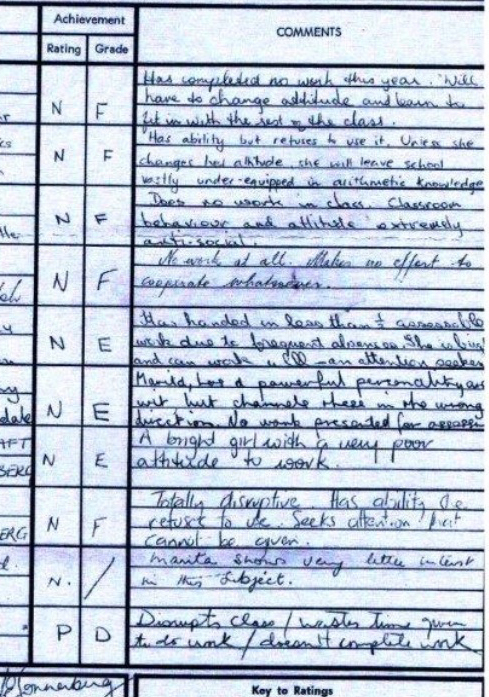 Achievement
COMMENTS
Rating Grade
Has completed no work this year. Will
N F have to change attitude and learn to
fit in with the rest of the class.
Has ability but refuses to use it. Unless she
N F changes her attitude she will leave school
vastly under-equipped in arithmetic knowledge
Does no work in class. Classroom
N F behaviour and attitude extremely
anti-social.
No work at all. Makes no effort to
N F cooperate whatsoever.
Has handed in less than ½ assessable
N E work due to frequent absences. She is
and can work well - an attention seeker
Marita, has a powerful personality and
date N E wit but channels these in the wrong
direction. No work presented for
AFT A bright girl with a very poor
BERG N E attitude to work.
Totally disruptive. Has ability
ERG N F refuses to use. Seeks attention that
cannot be given.
Marita shows very little interest
N. / in this subject.
Disrupts class / wastes time given
P D to do work / doesn't complete work
Sonnenberg
Key to Ratings